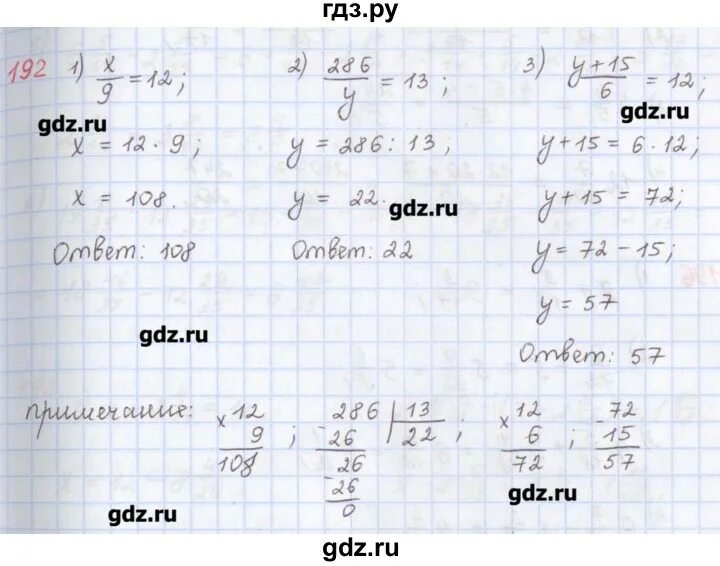 гдз.ру
192 1) x/9 = 12; 2) 286/y = 13; 3) y+15/6 = 12;
gdz.ru gdz.ru
x = 12 · 9; y = 286 : 13; y + 15 = 6 · 12;
x = 108. y = 22. gdz.ru y + 15 = 72;
Ответ: 108 Ответ: 22 y = 72 - 15;
y = 57
gdz.ru
Ответ: 57
примечание: x 12 286 | 13 x 12 - 72
9 ; - 26 22 ; 6 ; 15
108 26 72 57
- 26
0
gdz.ru gdz.ru
gdz.ru